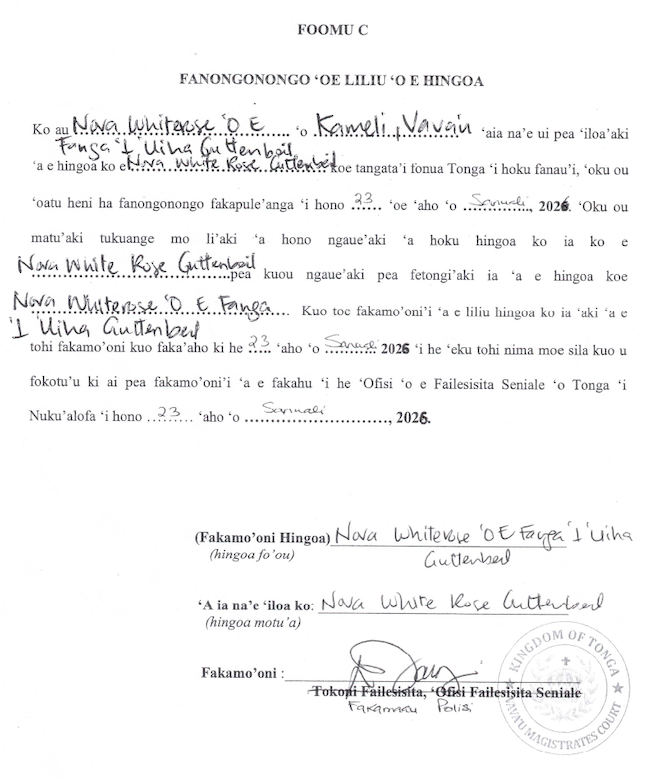 FOOMU C
FANONGONONGO ‘OE LILIU ‘O E HINGOA
Ko au Nova Whiterose 'O E ‘o Kameli, Vava'u ‘aia na’e ui pea ‘iloa’aki
Fanga 'I 'Uiha Guttenbeil
‘a e hingoa ko e Nova White Rose Guttenbeil koe tangata’i fonua Tonga ‘i hoku fanau’i, ‘oku ou
‘oatu heni ha fanongonongo fakapule’anga ‘i hono 23 ‘oe ‘aho ‘o Sanuali, 2026. ‘Oku ou
matu’aki tukuange mo li’aki ‘a hono ngaue’aki ‘a hoku hingoa ko ia ko e
Nova White Rose Guttenbeil pea kuou ngaue’aki pea fetongi’aki ia ‘a e hingoa koe
Nova Whiterose 'O E Fanga. Kuo toe fakamo’oni’i ‘a e liliu hingoa ko ia ‘aki ‘a e
'I 'Uiha Guttenbeil
tohi fakamo’oni kuo faka’aho ki he 23 ‘aho ‘o Sanuali 2026 ‘i he ‘eku tohi nima moe sila kuo u
fokotu’u ki ai pea fakamo’oni’i ‘a e fakahu ‘i he ‘Ofisi ‘o e Failesisita Seniale ‘o Tonga ‘i
Nuku’alofa ‘i hono 23 ‘aho ‘o Sanuali, 2026.
(Fakamo’oni Hingoa) Nova Whiterose 'O E Fanga 'I 'Uiha
(hingoa fo’ou) Guttenbeil
‘A ia na’e ‘iloa ko: Nova White Rose Guttenbeil
(hingoa motu’a)
Fakamo’oni :
Tokoni Failesisita, ‘Ofisi Failesisita Seniale
Fakamau Polisi
KINGDOM OF TONGA
VAVA'U MAGISTRATES COURT